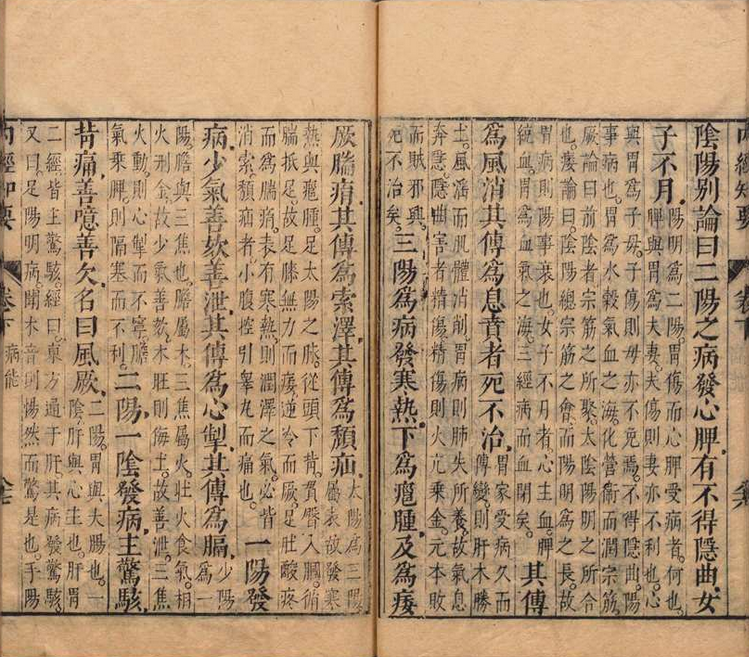 陰陽别論曰二陽之病發心脾有不得隱曲女
子不月陽明為二陽胃傷而心脾受病者何也
脾與胃為夫妻夫傷則妻亦不利也心
與胃為子母子傷則母亦不免焉不得隱曲陽
事病也胃為水穀氣血之海化營衛而潤宗筋
厥論曰前陰者宗筋之所聚太陰陽明之所合
也痿論曰陰陽總宗筋之會而陽明為之長故
胃病則陽事衰也女子不月者心主血脾
統血胃為氣血之海三經病而血閉矣其傳
為風消其傳為息賁者死不治胃家受病久而
傳變則肝木勝
土風淫而肌體消削胃病則肺失所養故氣息
奔急隱曲害者精傷精傷則火亢乘金元本敗
而賊邪興
死不治矣三陽為病發寒熱下為癰腫及為痿
厥腨㾓其傳為索澤其傳為㿗疝太陽為三陽
屬表故發寒
熱與癰腫足太陽之脉從頭下背貫臀入膕循
腨抵足故足膝無力而痿逆冷而厥足肚酸疼
而為腨㾓表有寒熱則潤澤之氣必皆
消索㿗疝者小腹控引睾丸而痛也一陽發
病少氣善欬善泄其傳為心掣其傳為膈少陽
為一
陽膽與三焦也膽屬木三焦屬火壯火食氣相
火刑金故少氣善欬木旺則侮土故善泄三焦
火動則心掣而不寧膽
氣乘脾則隔塞而不利二陽一陰發病主驚駭
背痛善噫善欠名曰風厥二陽胃與大腸也一
陰肝與心主也肝胃
二經皆主驚駭經曰東方通于肝其病發驚駭
又曰足陽明病聞木音則惕然而驚是也手陽
内經知要 卷下 病能